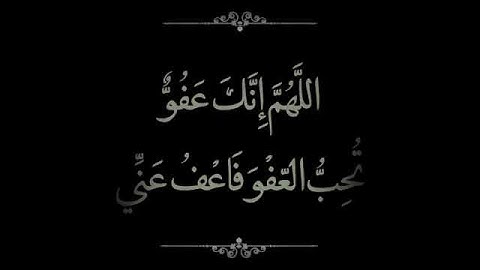 اللَّهُمَّ إِنَّكَ عَفُوٌّ
تُحِبُّ العَفْوَ فَاعْفُ عَنِّي